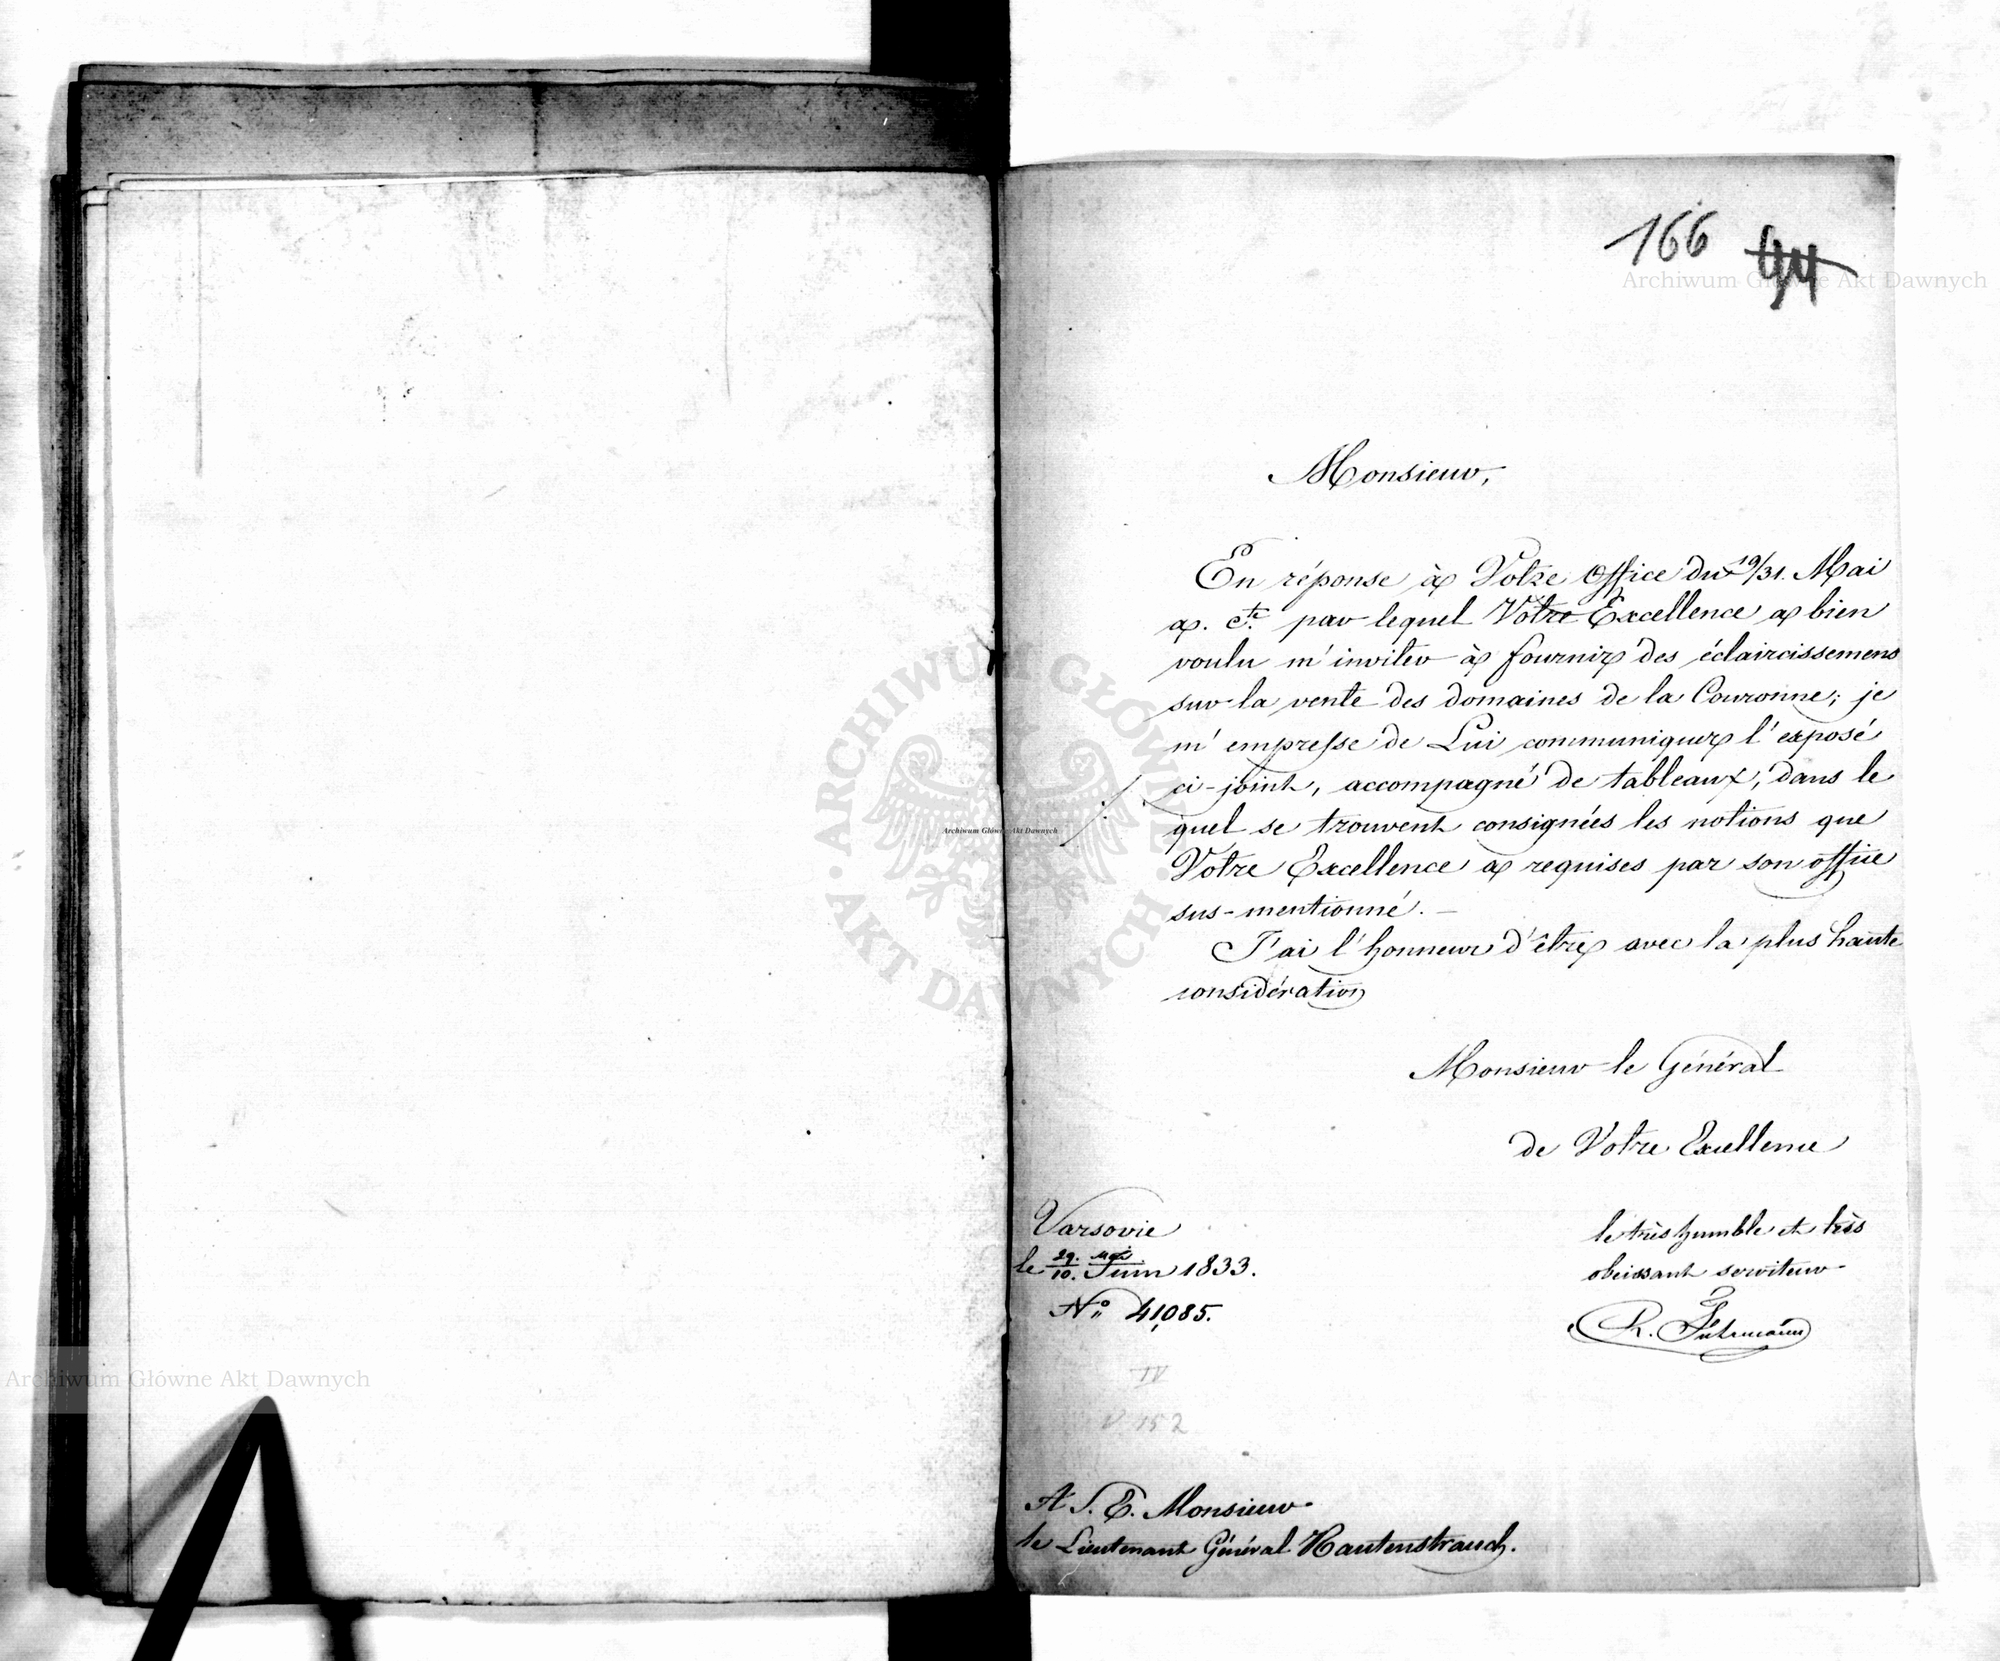 166 94
Monsieur,
En réponse à Votre Office du 19/31. Mai
a. ct. par lequel Votre Excellence a bien
voulu m'inviter à fournir des éclaircissemens
sur la vente des domaines de la Couronne; je
m'empresse de Lui communiquer l'exposé
ci-joint, accompagné de tableaux, dans le
quel se trouvent consignées les notions que
Votre Excellence a requises par son office
sus-mentionné.
J'ai l'honneur d'être avec la plus haute
considération
Monsieur le Général
de Votre Excellence
le très humble et très
obeissant serviteur
R. Fuhrmann
Varsovie
le 29. Mai / 10. Juin 1833.
No 41,085.
IV
V. 152
A S. E. Monsieur
le Lieutenant Général Rautenstrauch.
Archiwum Główne Akt Dawnych
ARCHIWUM GŁÓWNE AKT DAWNYCH
Archiwum Główne Akt Dawnych
Archiwum Główne Akt Dawnych